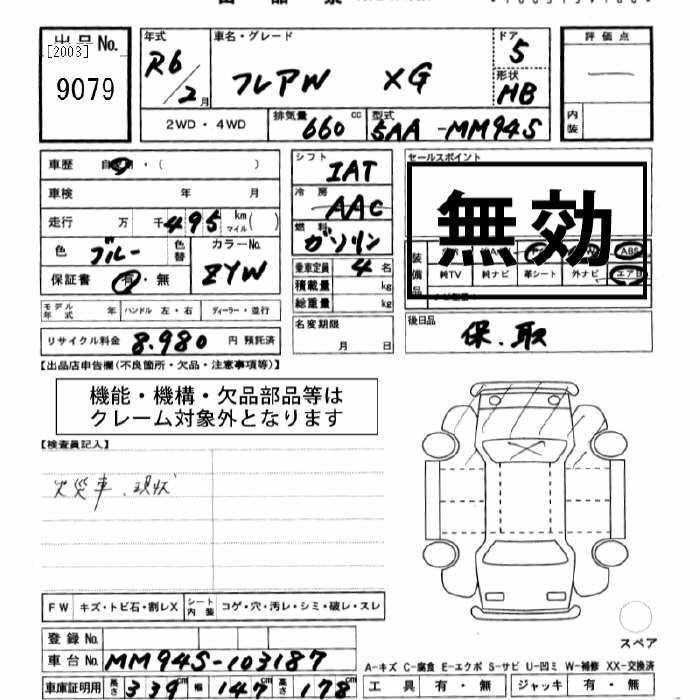 出品票
出品No. 年式 車名・グレード ドア 評価点
[2003] R6/2月 フレアW XG 5
9079 形状 HB
2WD・4WD 排気量 660 cc 型式 5AA-MM94S 内装
車歴 自家用・( ) シフト IAT セールスポイント
車検 年 月 冷房 AAC 無効
走行 万 千 495 km マイル ( ) 燃料 ガソリン
色 ブルー 色替 カラーNo. ZYW 装備品 ABS
保証書 有・無 乗車定員 4名 純TV 純ナビ 革シート 外ナビ エアB
積載量 kg
モデル年式 年 ハンドル 左・右 ディーラー・並行 総重量 kg
リサイクル料金 8.980 円 預託済 名変期限 月 日 後日品 保.取
【出品店申告欄(不良箇所・欠品・注意事項等)】
機能・機構・欠品部品等は
クレーム対象外となります
【検査員記入】
火災車.現状
FW キズ・トビ石・割レX シート内装 コゲ・穴・汚レ・シミ・破レ・スレ
登録No. スペア
車台No. MM94S-103187 A-キズ C-腐食 E-エクボ S-サビ U-凹ミ W-補修 XX-交換済
車庫証明用 長さ 339cm 幅 147cm 高さ 178cm 工具 有・無 ジャッキ 有・無